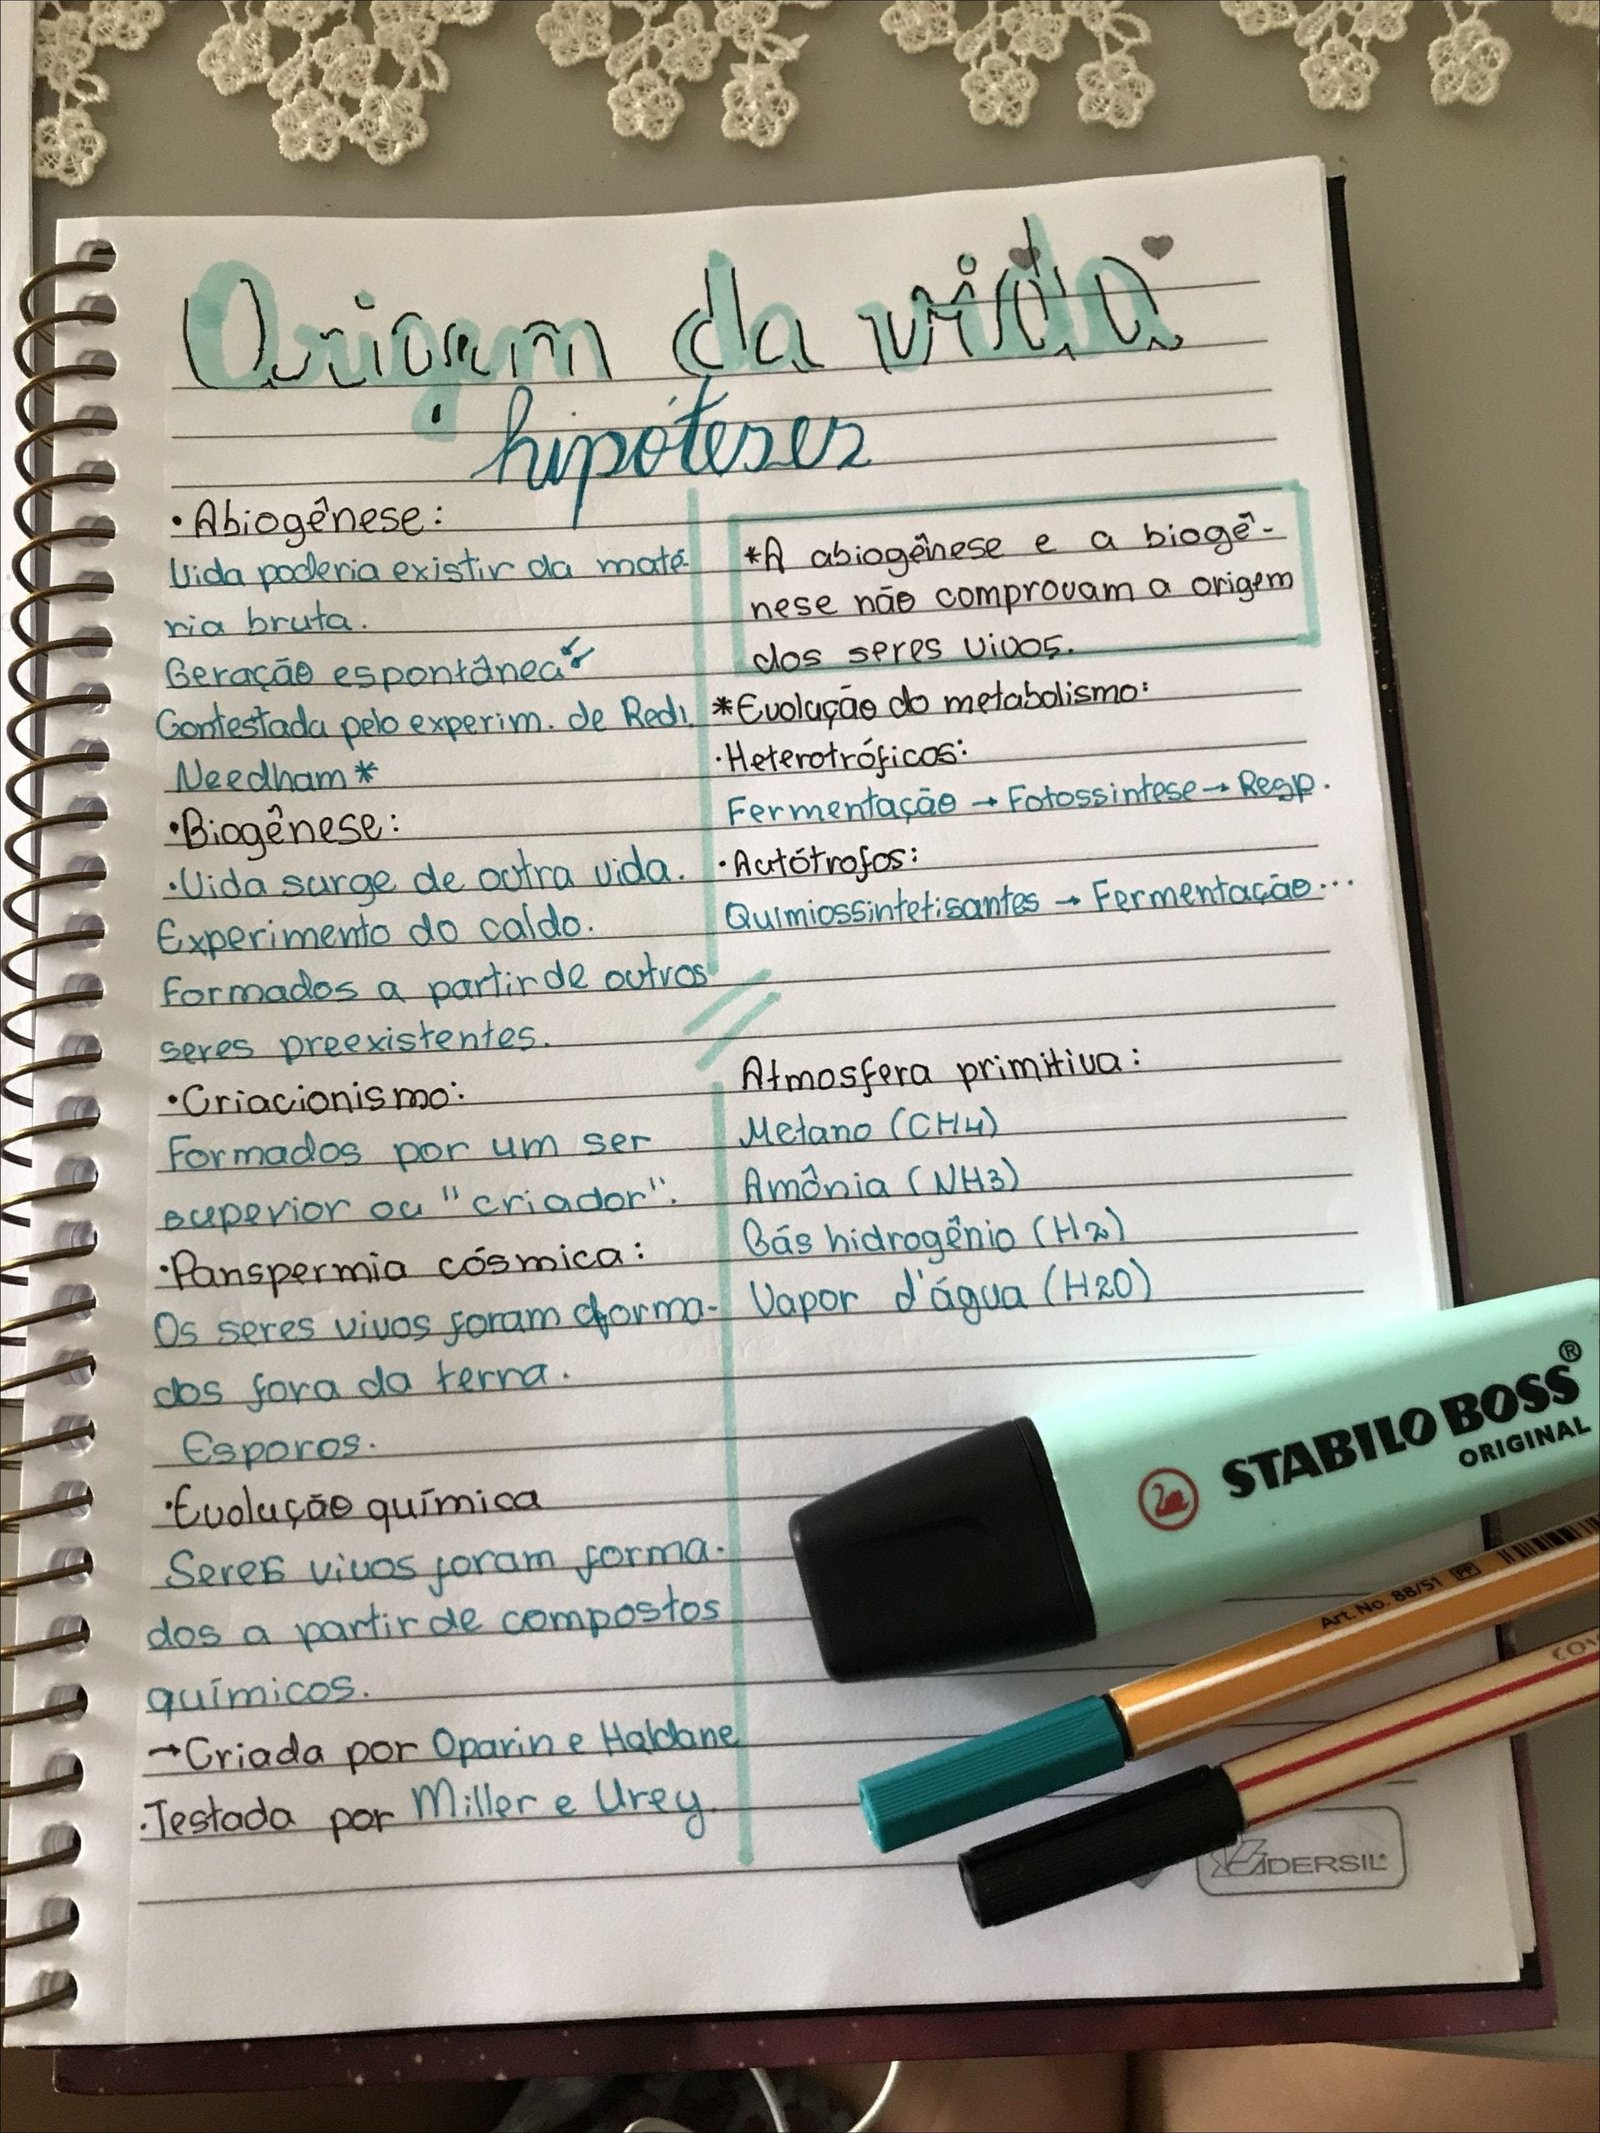 Origem da vida
hipóteses
•Abiogênese:
Vida poderia existir da maté-
ria bruta.
Geração espontânea
Contestada pelo experim. de Redi.
Needham*
•Biogênese:
•Vida surge de outra vida.
Experimento do caldo.
Formados a partir de outros
seres preexistentes.
•Criacionismo:
Formados por um ser
superior ou "criador".
•Panspermia cósmica:
Os seres vivos foram forma-
dos fora da terra.
Esporos.
•Evolução química
Seres vivos foram forma-
dos a partir de compostos
químicos.
→Criada por Oparin e Haldane
•Testada por Miller e Urey.
*A abiogênese e a biogê-
nese não comprovam a origem
dos seres vivos.
*Evolução do metabolismo:
•Heterotróficos:
Fermentação → Fotossintese → Resp.
•Autótrofos:
Quimiossintetisantes → Fermentação...
Atmosfera primitiva:
Metano (CH4)
Amônia (NH3)
Gás hidrogênio (H2)
Vapor d'água (H2O)
STABILO BOSS®
ORIGINAL
Art. No. 88/51 PP
DERSIL®